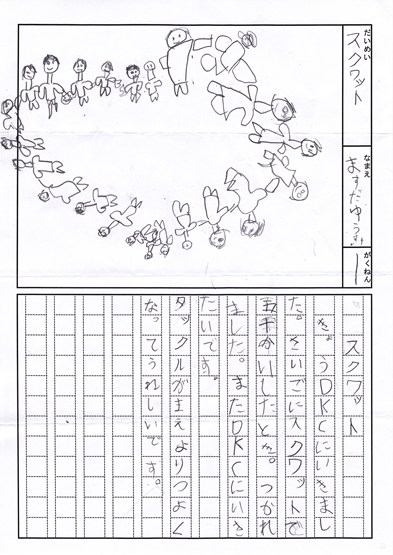 だいめい
スクワット
なまえ
ますだゆうま
がくねん
一
スクワット
きょうDKCにいきまし
た。さいごにスクワットで
五千かいしたとき。つかれ
ました。またDKCにいき
たいです。
タックルがまえよりつよく
なってうれしいです。